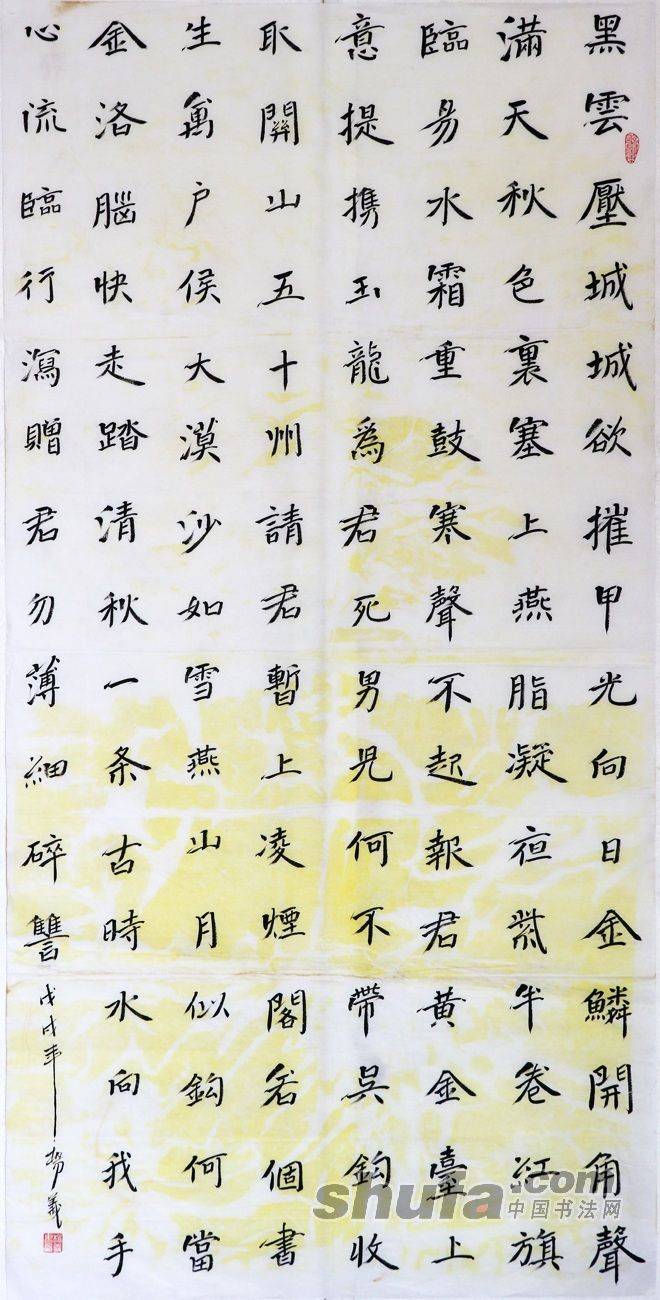 黑雲壓城城欲摧甲光向日金鱗開角聲
滿天秋色裏塞上燕脂凝夜紫半卷紅旗
臨易水霜重鼓寒聲不起報君黃金臺上
意提携玉龍爲君死男兒何不帶吳鉤收
取關山五十州請君暫上凌煙閣若個書
生萬户侯大漠沙如雪燕山月似鉤何當
金洛腦快走踏清秋一条古時水向我手
心流臨行瀉贈君勿薄細碎讐
戊戌年
shufa.com
中国书法网